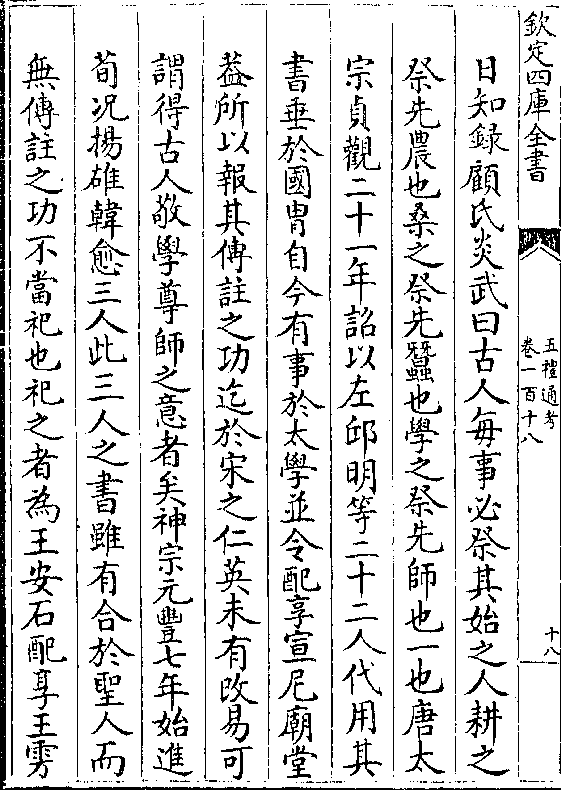 欽定四庫全書
五禮通考
卷一百十八
十八
日知録顧氏炎武曰古人每事必祭其始之人耕之
祭先農也桑之祭先蠶也學之祭先師也一也唐太
宗貞觀二十一年詔以左邱明等二十二人代用其
書垂於國胄自今有事於太學並令配享宣尼廟堂
葢所以報其傳註之功迄於宋之仁英未有改易可
謂得古人敬學尊師之意者矣神宗元豐七年始進
荀况揚雄韓愈三人此三人之書雖有合於聖人而
無傳註之功不當祀也祀之者為王安石配享王雱